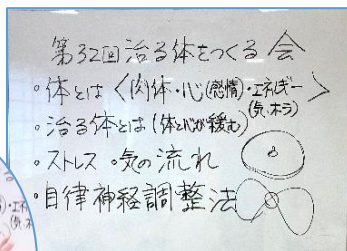 第32回治る体をつくる会
・体とは〈肉体・心(感情)・エネルギー(気、ホラ)〉
・治る体とは(体と心が緩む)
・ストレス ・気の流れ
・自律神経調整法